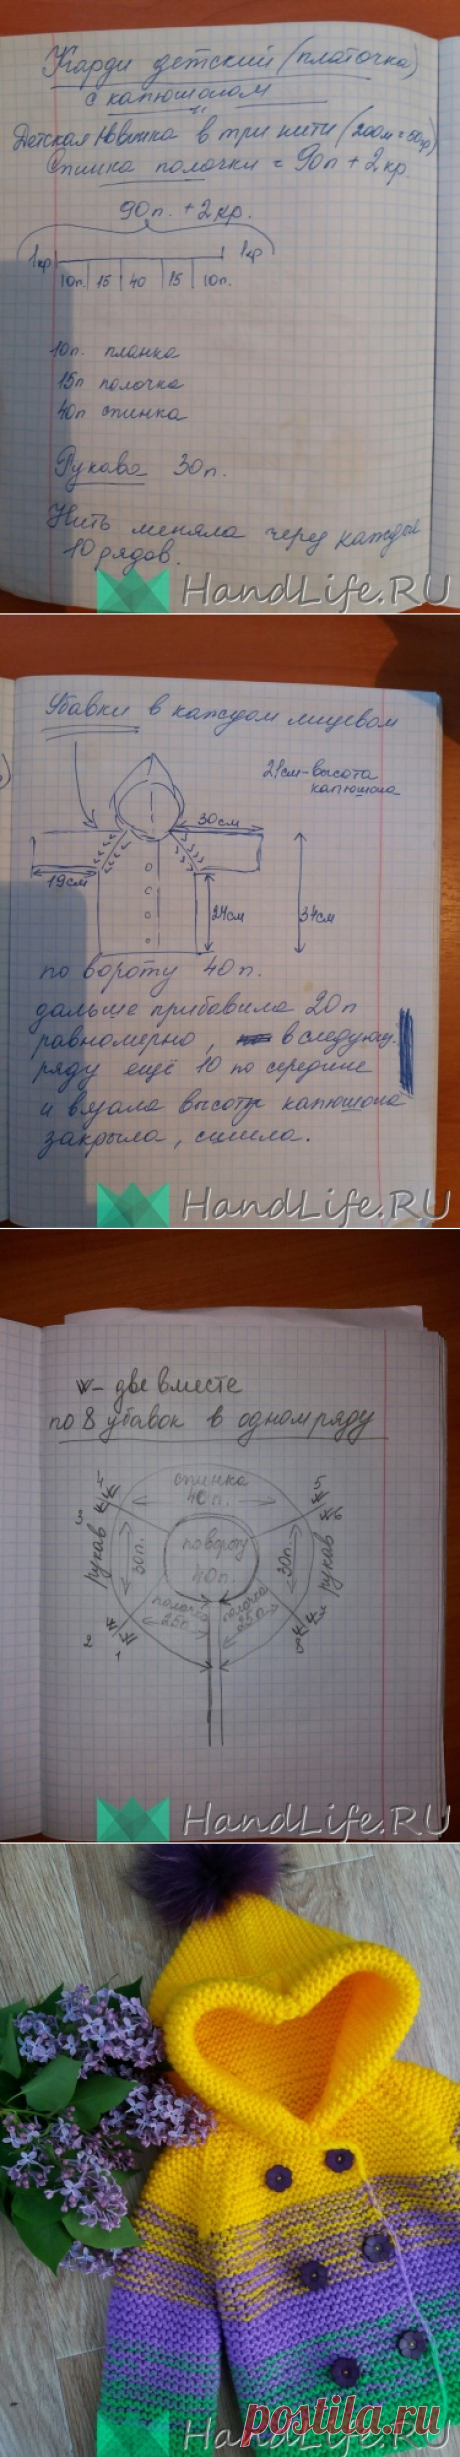 Карди детский (платочка)
с капюшоном
Детская Новинка в три нити (200м=50гр)
Спинка полочки = 90п + 2кр.
90п. + 2кр.
1кр 1кр
10п. 15 40 15 10п.
10п. планка
15п полочка
40п спинка
Рукава 30п.
Нить меняла через каждых
10 рядов.
HandLife.RU
Убавки в каждом лицевом
21см-высота
капюшона
30см
19см
24см
34см
по вороту 40п.
дальше прибавила 20п
равномерно, в следующ.
ряду ещё 10 по середине
и вязала высоту капюшона
закрыла, сшила.
HandLife.RU
- две вместе
по 8 убавок в одном ряду
спинка
40п.
4
5
3
6
рукав
30п.
по вороту
40п.
30п.
рукав
полочка
25п.
полочка
25п.
2
1
8
HandLife.RU
HandLife.RU
postila.ru